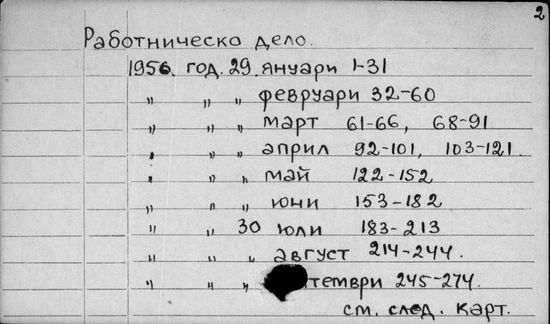 2
Работническо дело.
1956. год. 29. януари 1-31
" " " февруари 32-60
" " " март 61-66, 68-91
" " " април 92-101, 103-121.
" " " май 122-152
" " " юни 153-182
" " 30 юли 183-213
" " " август 214-244.
" " " тември 245-274.
см. след. карт.